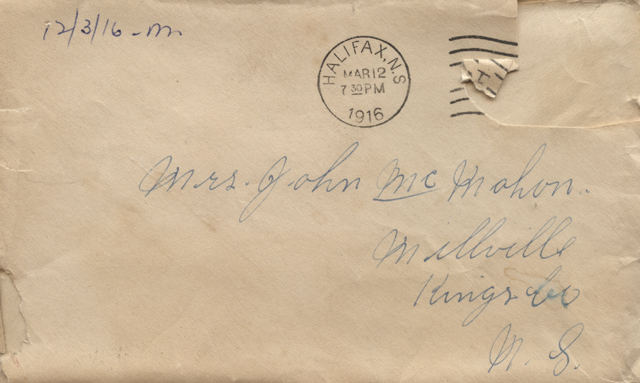 12/3/16 - m
HALIFAX, N.S
MAR 12
7 30 PM
1916
Mrs. John Mc Mahon.
Millville
Kings Co
N. S.